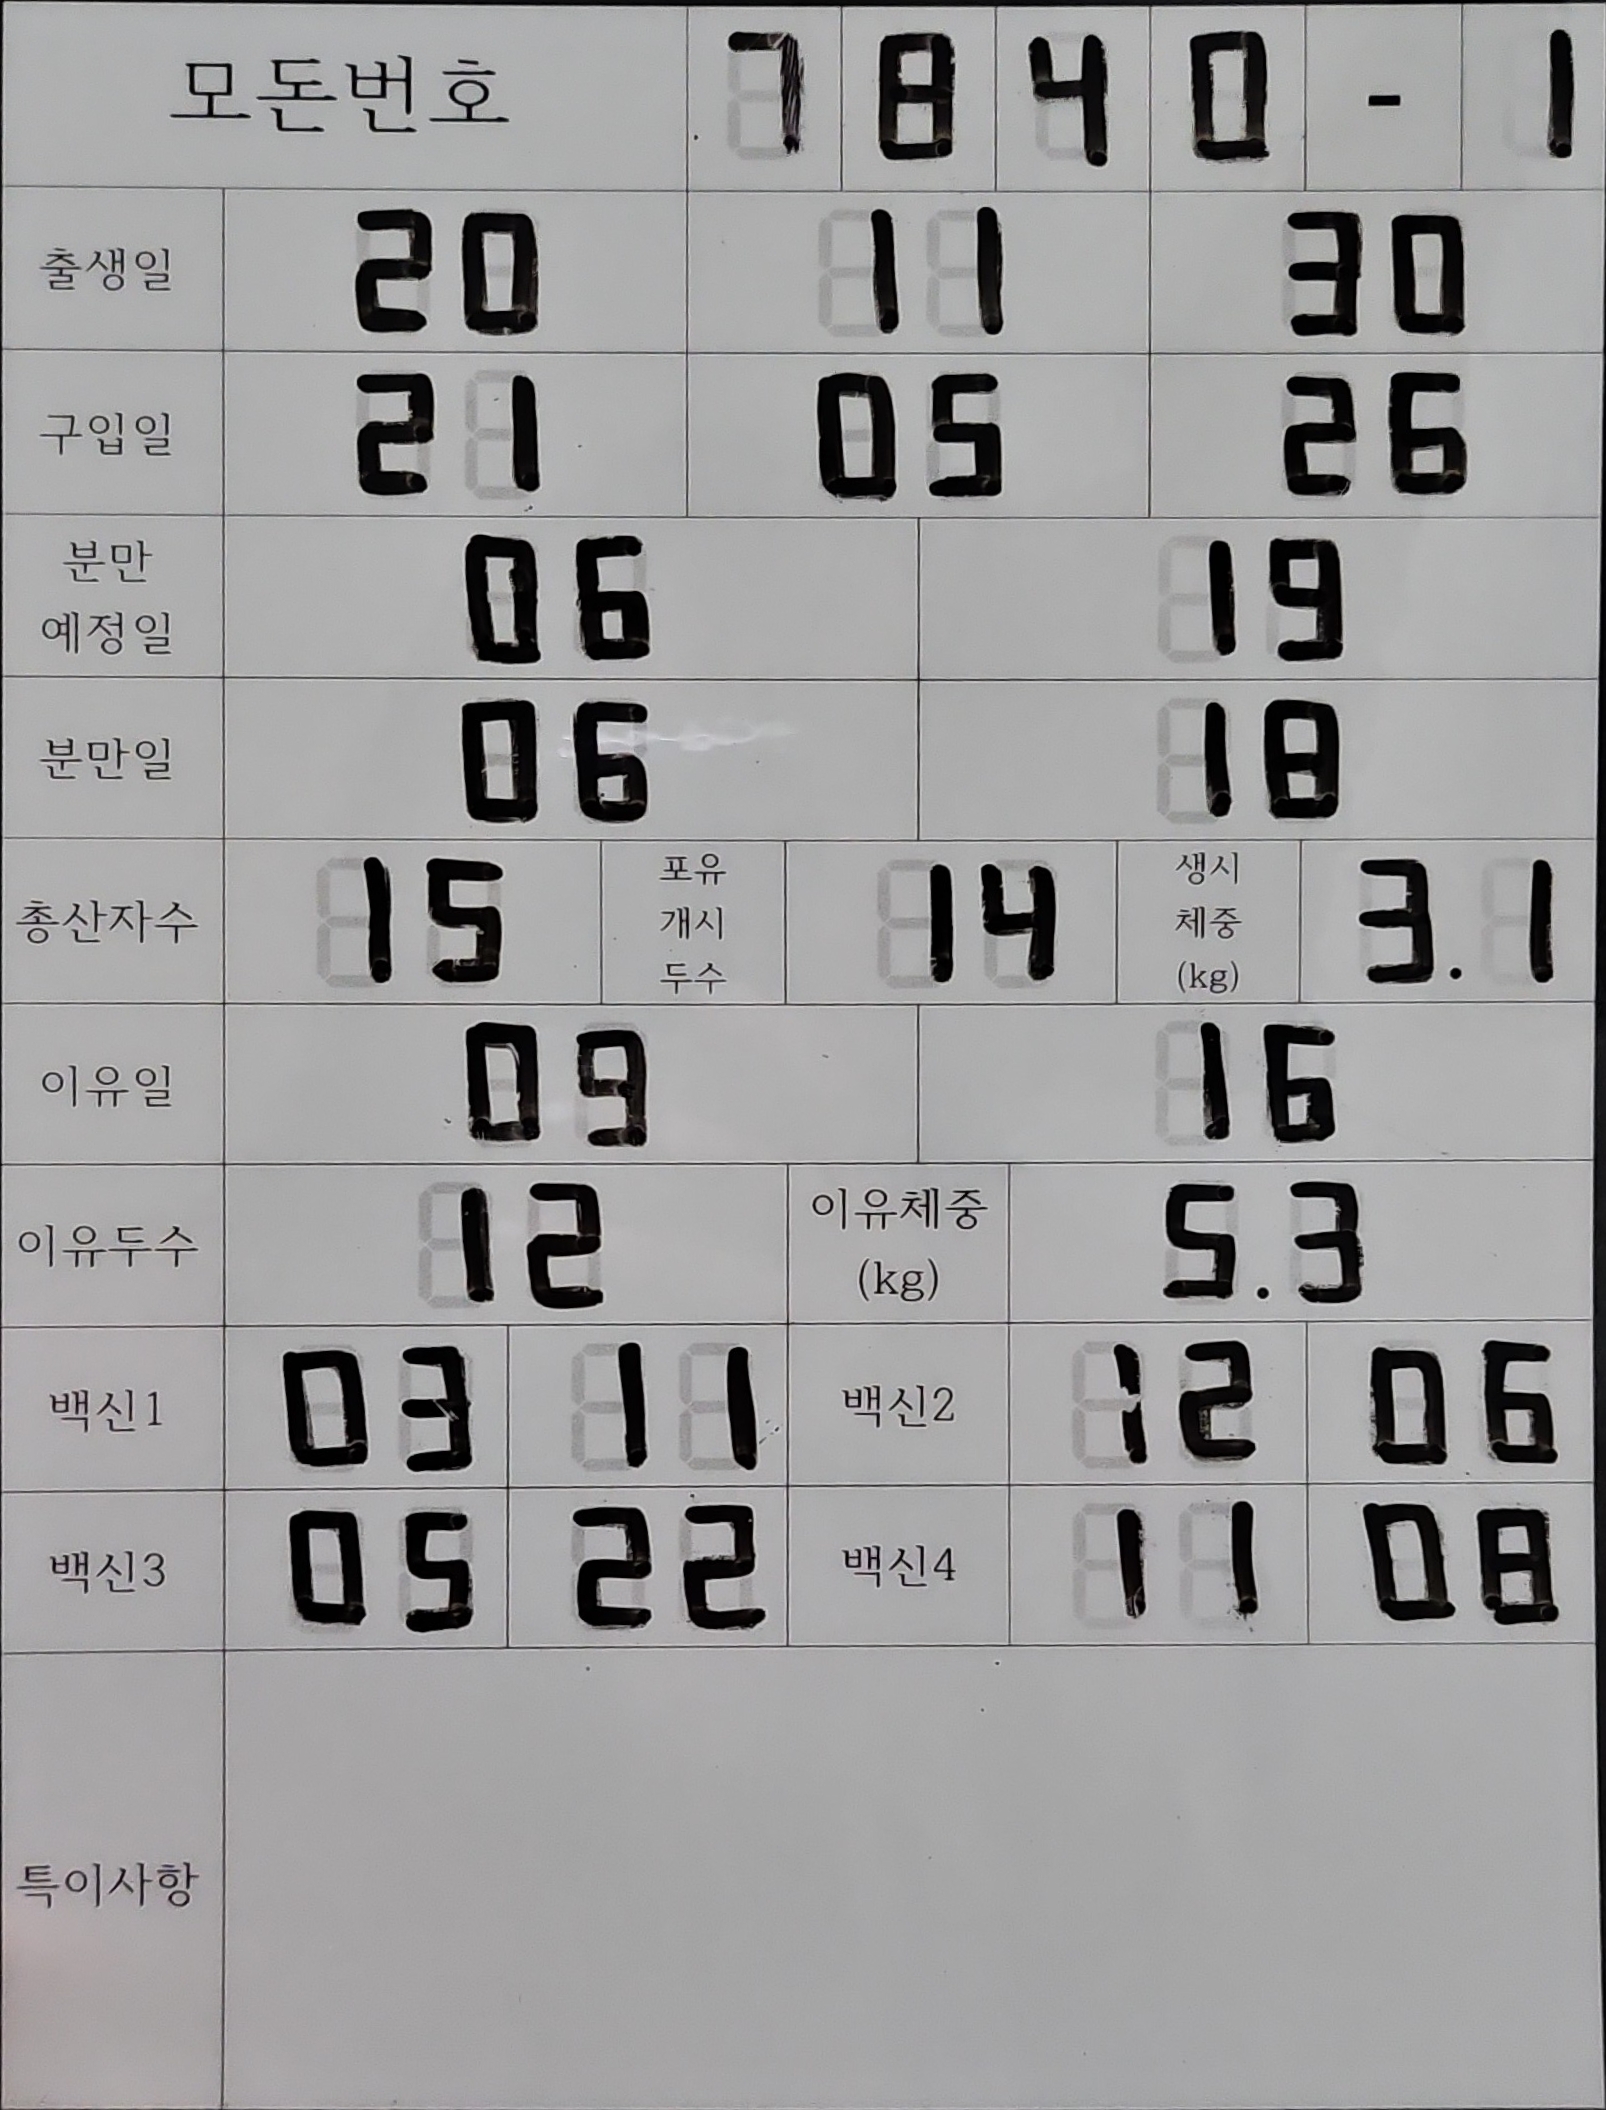 모돈번호 7840-1
출생일 20 11 30
구입일 21 05 26
분만
예정일 06 19
분만일 06 18
총산자수 15 포유
개시
두수 14 생시
체중
(kg) 3.1
이유일 09 16
이유두수 12 이유체중
(kg) 5.3
백신1 03 11 백신2 12 06
백신3 05 22 백신4 11 08
특이사항